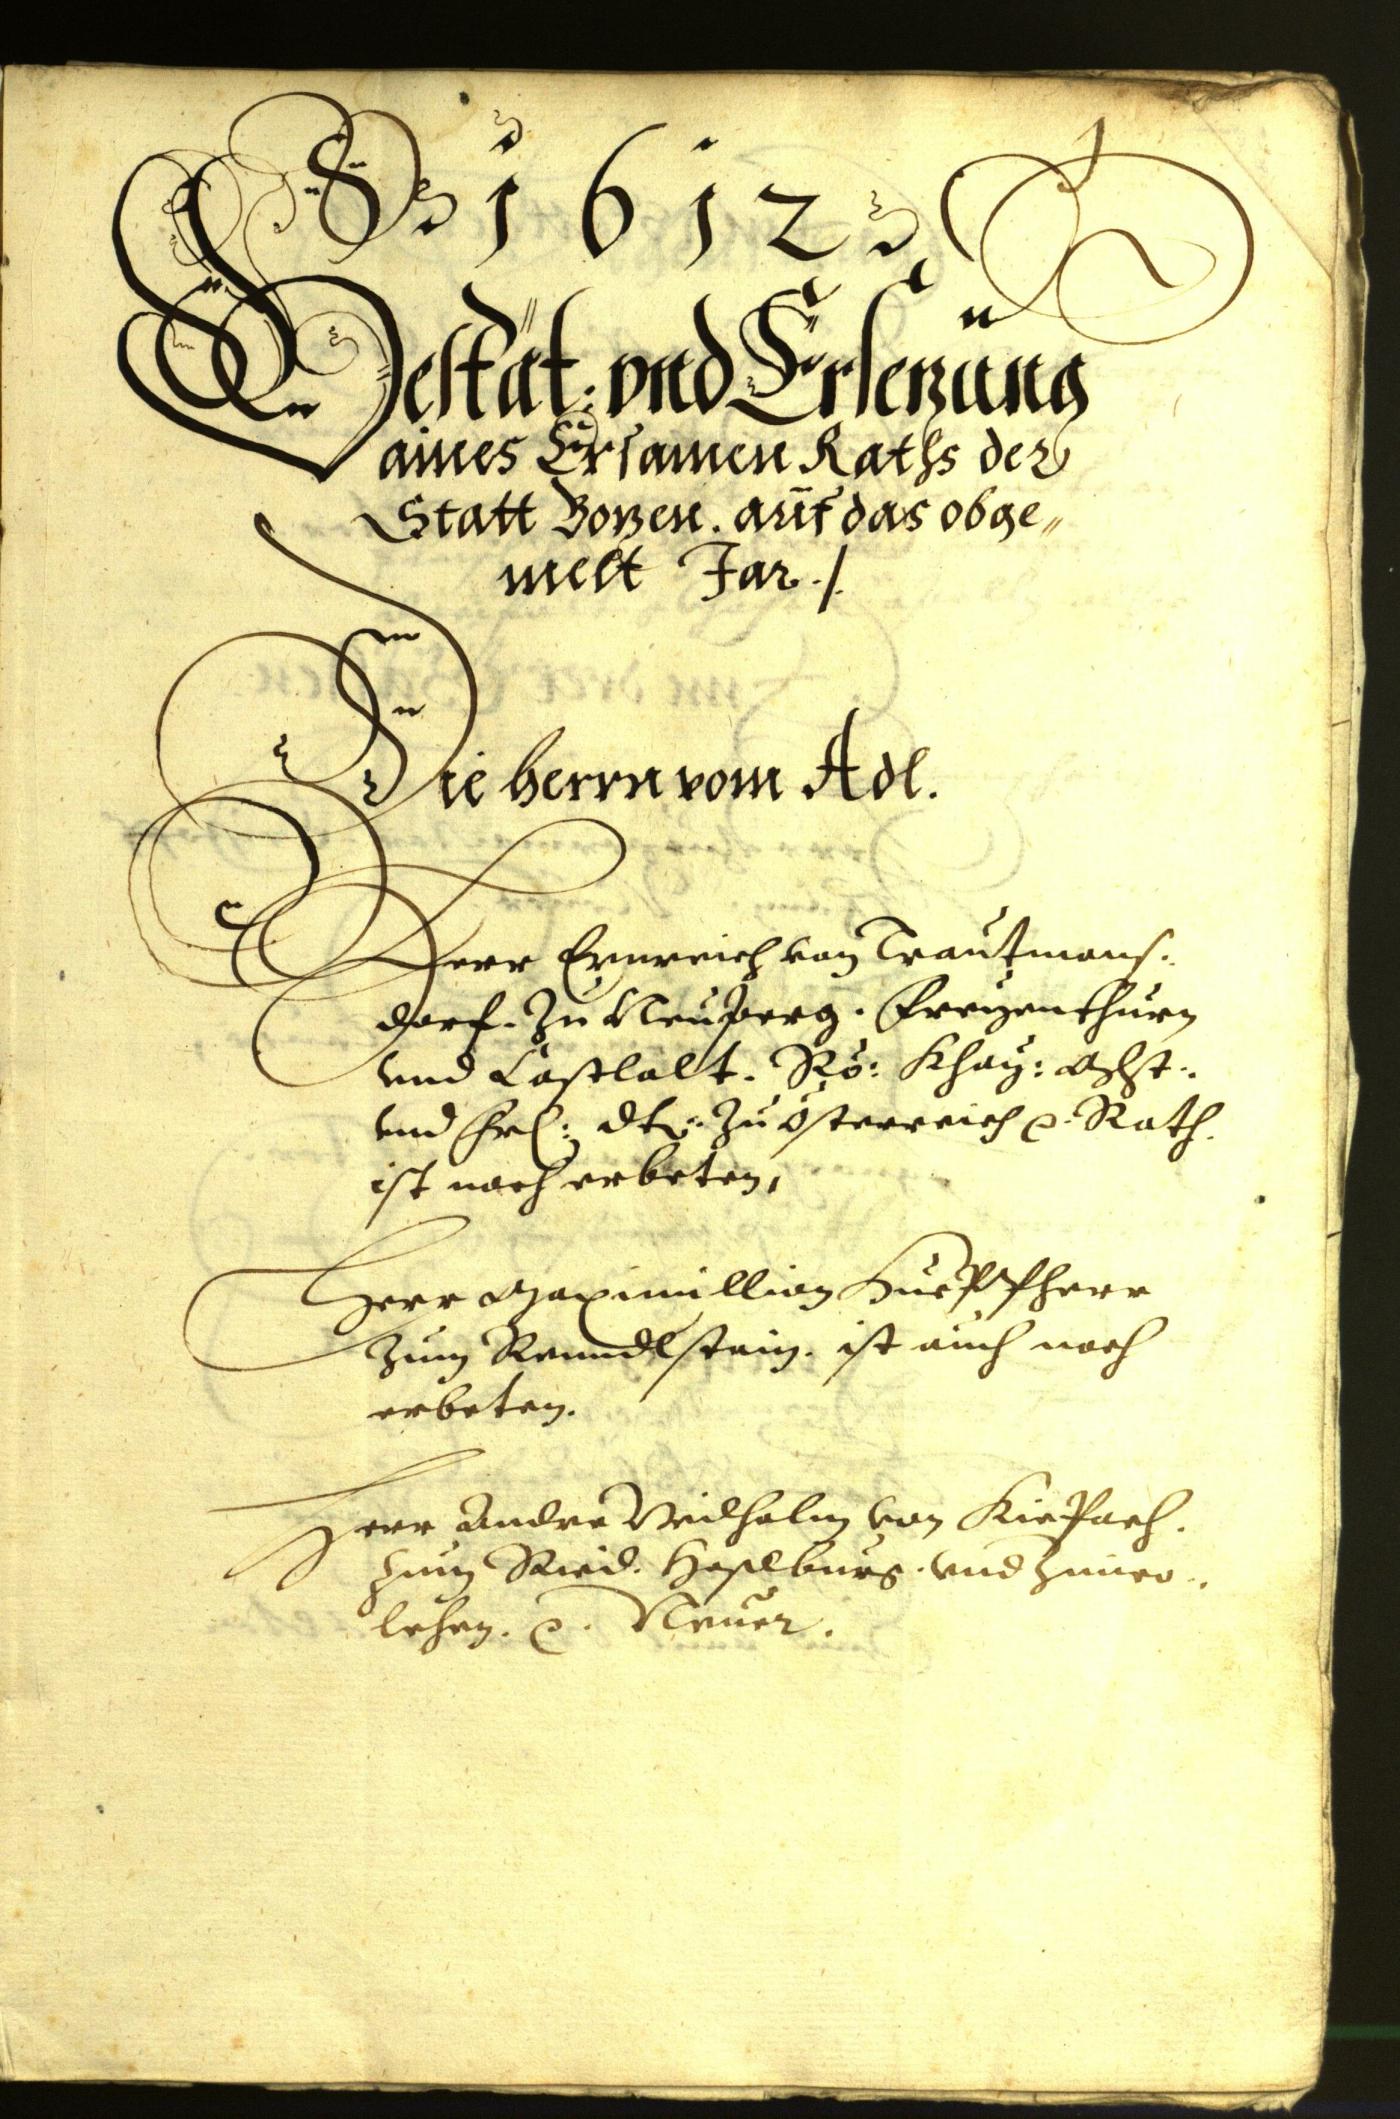 1612
Bestät: vnd Ersetzung
aines Ersamen Raths der
Statt Botzen. auf das obge„
melt Jar ./.
Die herrn vom Adl.
Herr Ernreich von Trautmans:
dorf. Zu Neuperg. Freyenthurn
vnd Castlalt. Rö: Khay: Mst:
vnd Frl: dt: Zu Österreich &. Rath.
ist noch erbeten,
Herr Maximillian Hueffherr
Zum Renndlstain. ist auch noch
erbeten.
Herr Andre Wilhalm von Kiepach.
zum Ried. Haslburg. vnd Zimer„
lehen. &. Neuer.